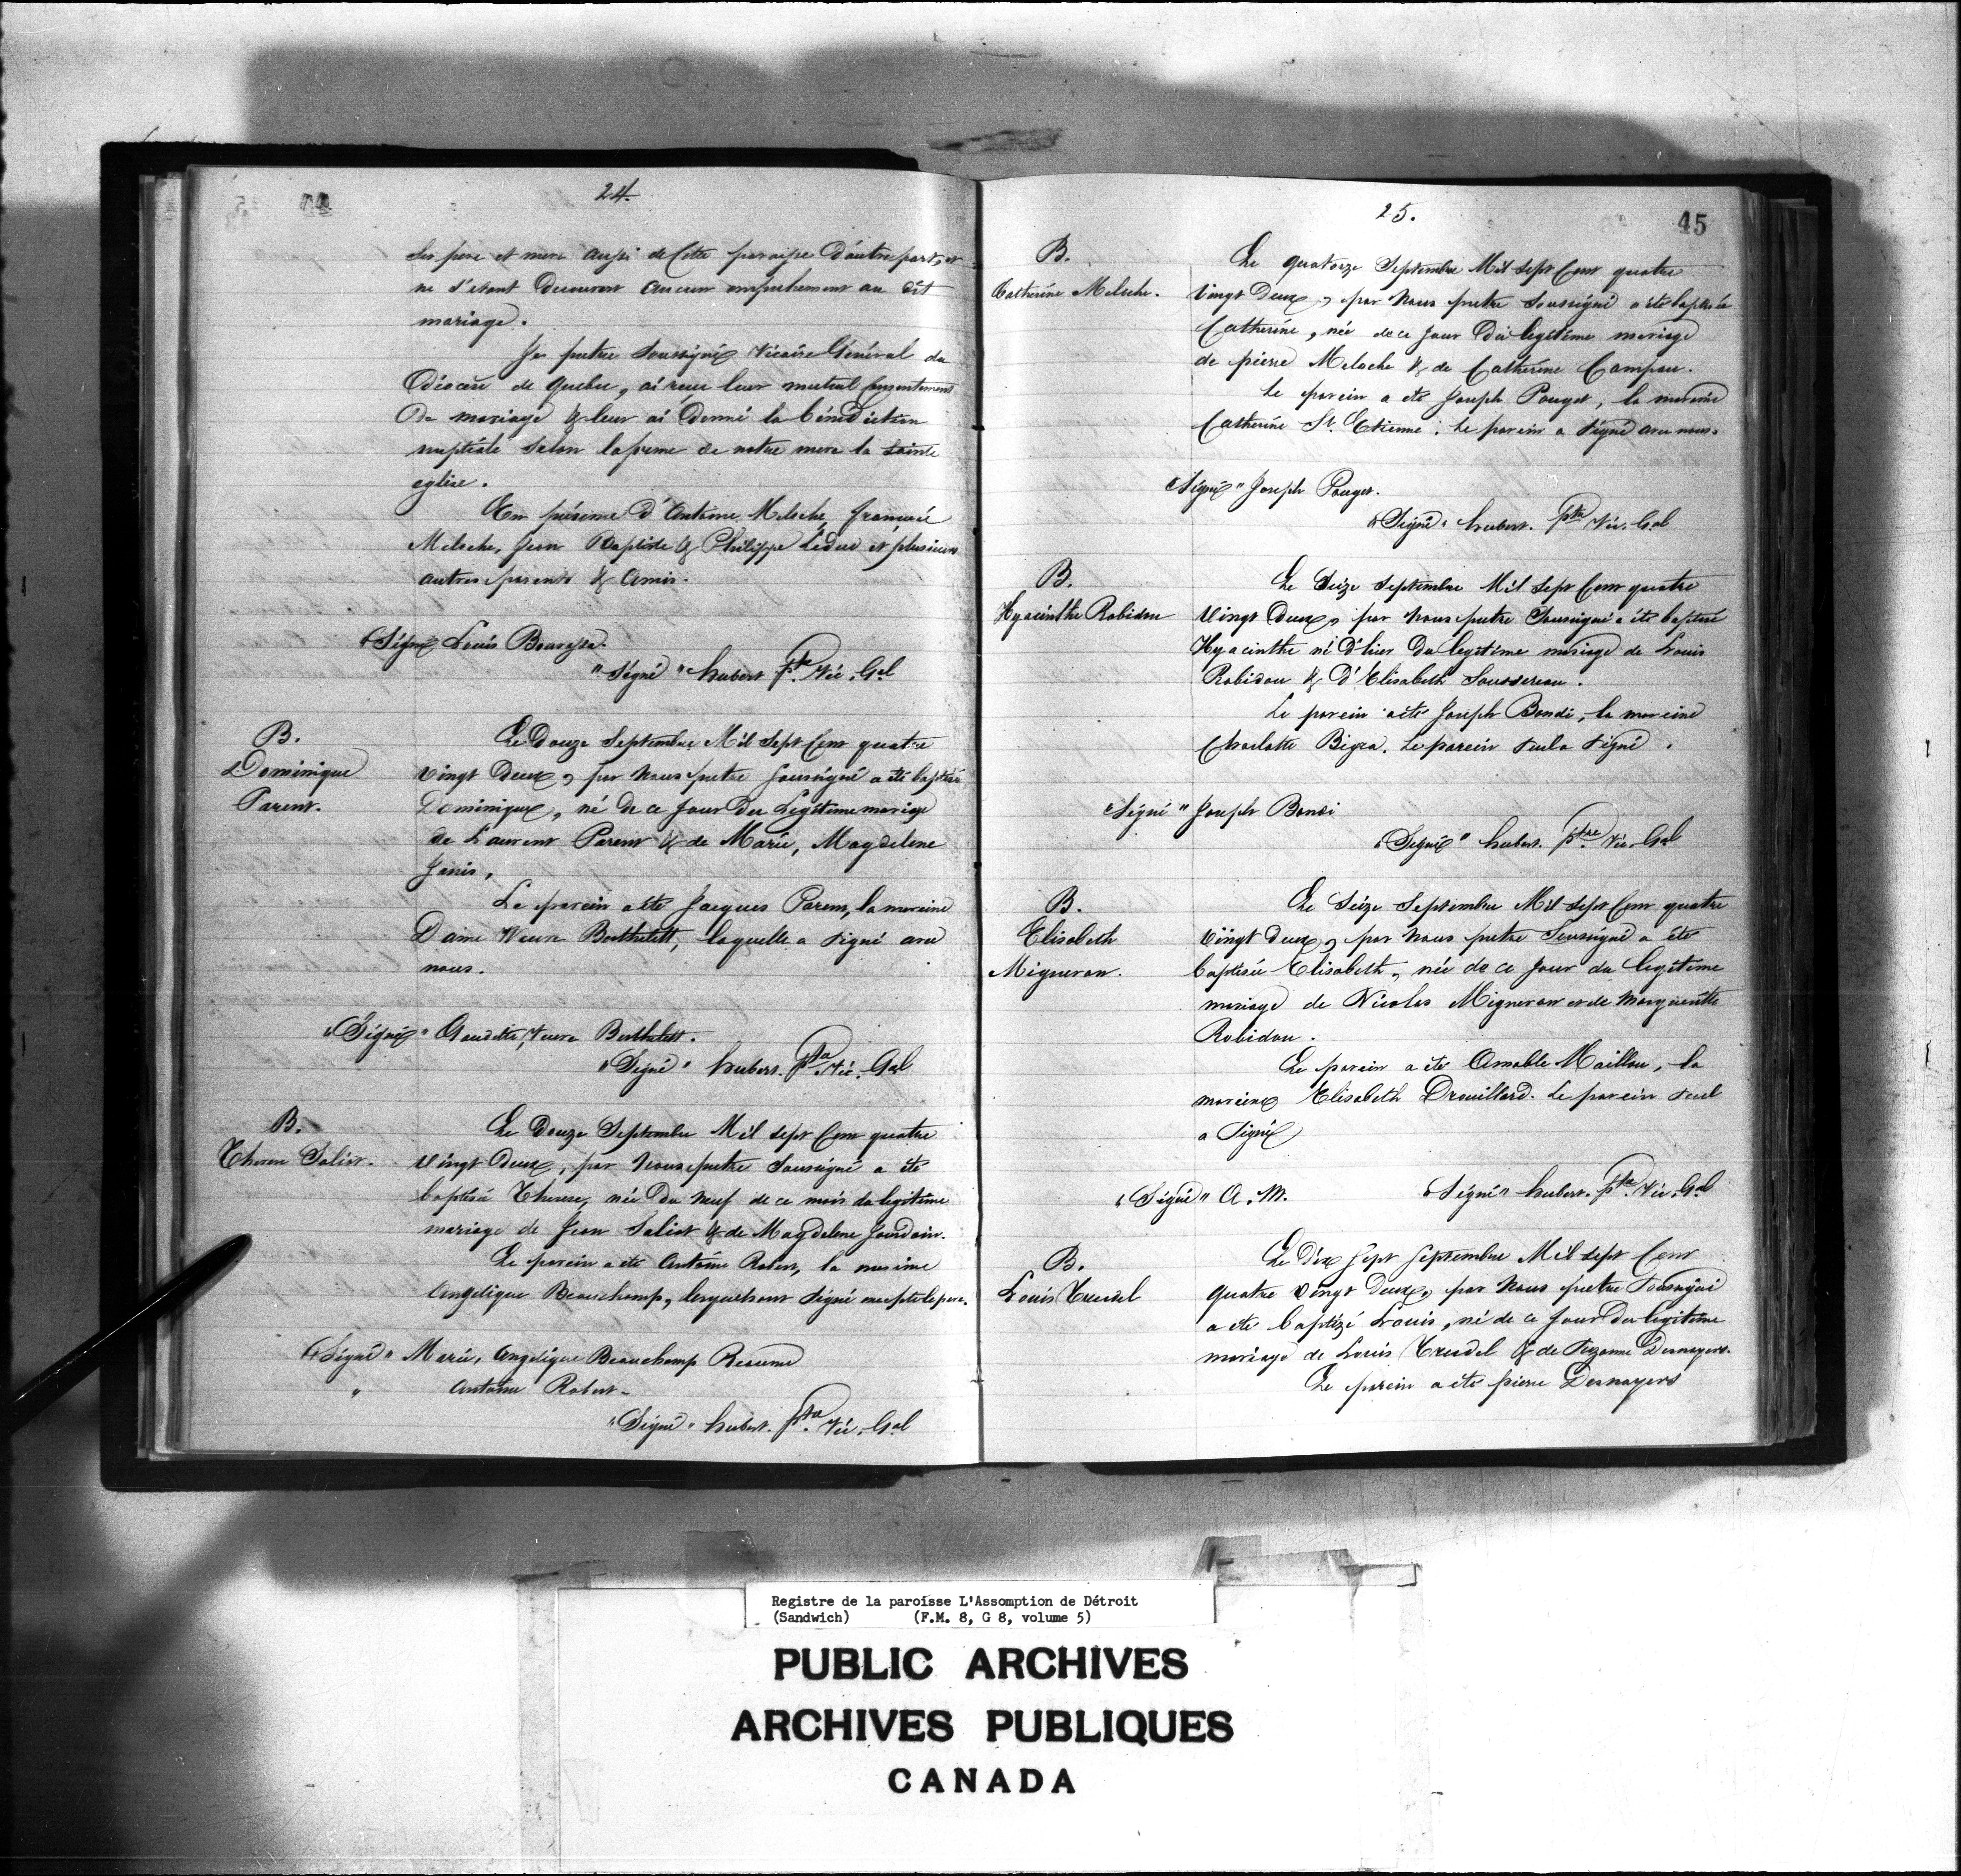 24.
Ses pere et mere aussi de Cette paroisse D'autre part, et
ne s'etant Decouvert aucun empechement au dit
mariage.
Je pretre Soussigné Vicaire Général du
Diocèse de Quebec, ai reçu leur mutuel Consentement
De mariage & leur ai Donné la bénédiction
nuptiale selon la forme de notre mere la Sainte
eglise.
En présence D'Antoine Meloche, François
Meloche, Jean Baptiste & Philippe Leduc et plusieurs
autres parents & Amis.
"Signé Louis Bourassa.
"Signé" hubert ptre Vic. Gal
B.
Dominique
Parent.
Le Douze Septembre Mil Sept Cent quatre
vingt Deux, par Nous pretre Soussigné a été baptisé
Dominique, né de ce jour Du Légitime mariage
de Laurent Parent & de Marie, Magdelene
Janis,
Le parein a été Jacques Parent, la mareine
Dame Veuve Berthelett, laquelle a signé avec
nous.
"Signé" Gaudette, Veuve Berthelett.
"Signé" hubert. ptre Vic. Gal
B.
Therese Saliot.
Le Douze Septembre Mil sept Cent quatre
vingt Deux, par Nous pretre Soussigné a été
baptisée Therese, née Du Neuf de ce mois du legitime
mariage de Jean Saliot & de Magdelene Jourdain.
Le parein a été Antoine Robert, la mareine
Angelique Beauchamp, lesquels ont signé excepté le pere.
"Signé" Marie, Angelique Beauchamp
" Antoine Robert.
"Signé" hubert. ptre Vic. Gal
25.
45
B.
Catherine Meloche.
Le quatorze Septembre Mil Sept Cent quatre
Vingt Deux, par Nous pretre Soussigné a été baptisée
Catherine, née de ce jour Du légitime mariage
de pierre Meloche & de Catherine Campau.
Le parein a été Joseph Pouget, la mareine
Catherine St. Etienne. Le parein a signé avec nous.
"Signé" Joseph Pouget.
"Signé" hubert. ptre Vic. Gal
B.
Hyacinthe Robidou
Le Seize Septembre Mil Sept Cent quatre
Vingt Deux, par Nous pretre Soussigné a été baptisé
Hyacinthe né D'hier Du legitime mariage de Louis
Robidou & D'Elisabeth Soussereau.
Le parein a été Joseph Bondi, la mareine
Charlotte Bigra. Le parein seul a signé.
"Signé" Joseph Bondi
"Signé" hubert. ptre Vic. Gal
B.
Elisabeth
Migneron.
Le Seize Septembre Mil Sept Cent quatre
Vingt Deux, par Nous pretre Soussigné a été
baptisée Elisabeth, née de ce jour du legitime
mariage de Nicolas Migneron et de Marguerite
Robidou.
Le parein a été Amable Maillou, la
mareine Elisabeth Drouillard. Le parein seul
a Signé
"Signé" A. M.
"Signé" hubert. ptre Vic. Gal
B.
Louis Trudel
Le Dix Sept Septembre Mil Sept Cent
quatre Vingt Deux, par Nous pretre Soussigné
a été baptizé Louis, né de ce jour Du legitime
mariage de Louis Trudel & de Suzanne Desnoyers.
Le parein a été pierre Desnoyers
Registre de la paroisse L'Assomption de Détroit
(Sandwich) (F.M. 8, G 8, volume 5)
PUBLIC ARCHIVES
ARCHIVES PUBLIQUES
CANADA